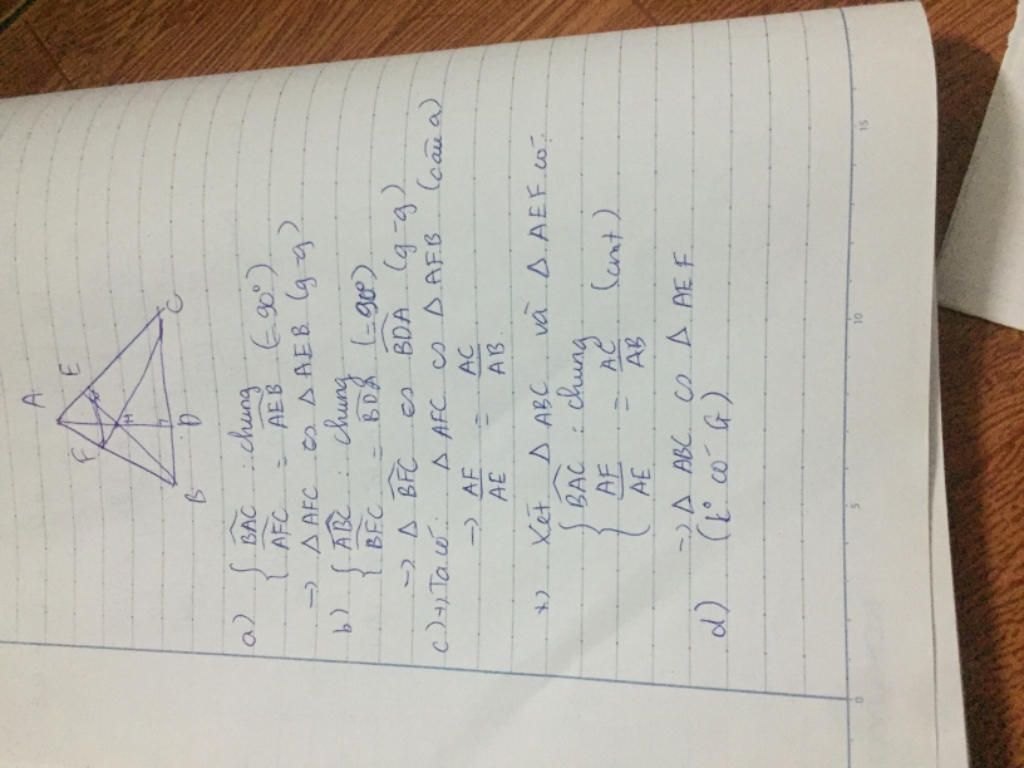 A
F
E
H
B
D
C
a) { B̂AC : chung
ÂFC = ÂEB (= 90°)
→ Δ AFC ∽ Δ AEB (g-g)
b) { ÂBC : chung
B̂FC = B̂DA (= 90°)
→ Δ B̂FC ∽ B̂DA (g-g)
c) +, Ta có: Δ AFC ∽ Δ AEB (câu a)
→ AF/AE = AC/AB
+) Xét Δ ABC và Δ AEF có:
{ B̂AC : chung
AF/AE = AC/AB (cmt)
→ Δ ABC ∽ Δ AEF
d) (k° có G)
0
5
10
15